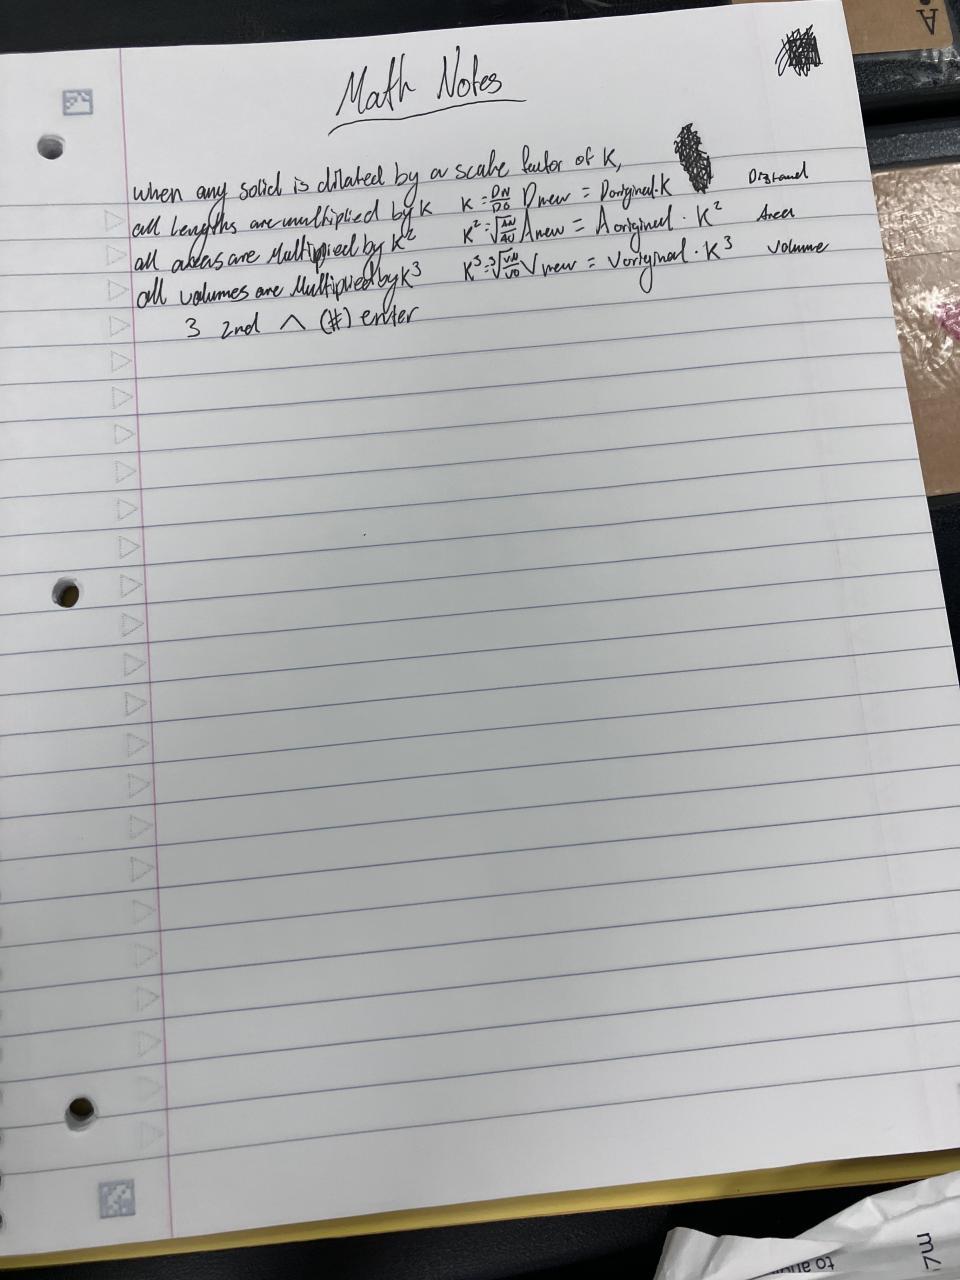 Math Notes
when any solid is dilated by a scale factor of K,
all Lengths are multiplied by K K = DN/DO Dnew = Doriginal·K Distand
all areas are Multiplied by K² K² = √AN/AO Anew = Aoriginal · K² Area
all volumes are Multiplied by K³ K³ = ³√VN/VO Vnew = Voriginal · K³ Volume
3 2nd ^ (#) enter
A